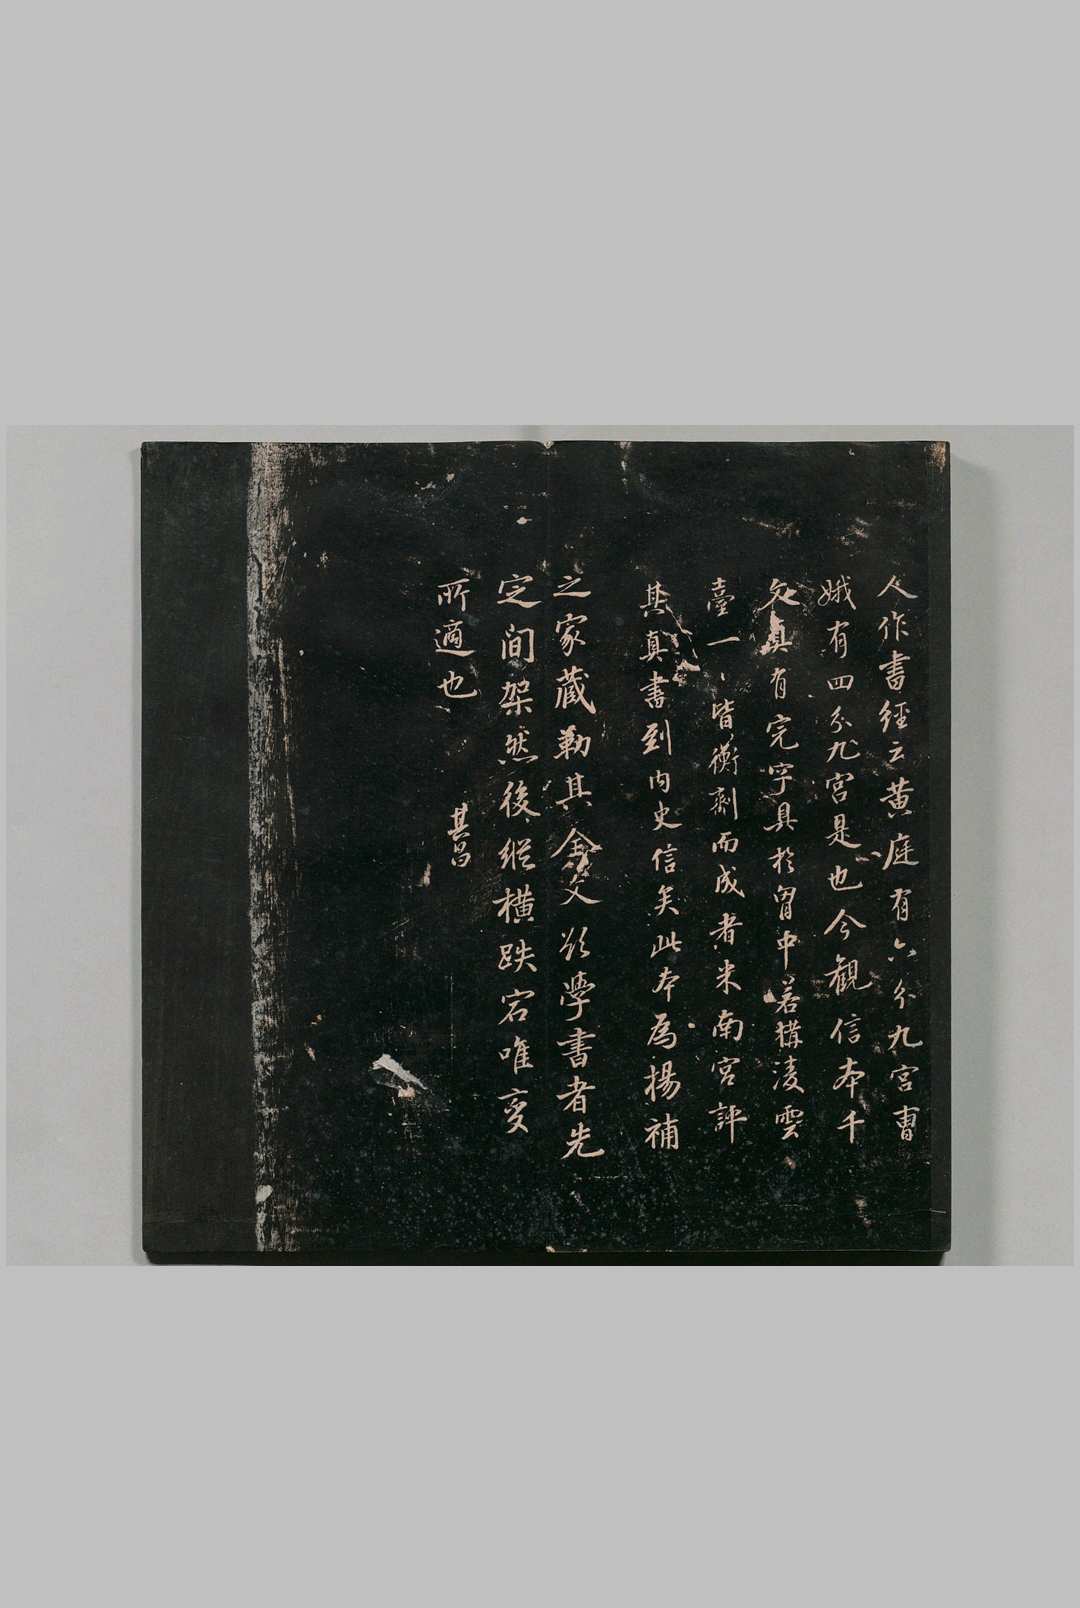 人作書經云黃庭有六分九宮曹
娥有四分九宮是也今観信本千
文真有完字具於胷中若構凌雲
臺一、皆衡劑而成者米南宮評
其真書到內史信矣此本為楊補
之家蔵勒其全文欲學書者先
定间架然後縱橫跌宕唯变
所適也
其昌